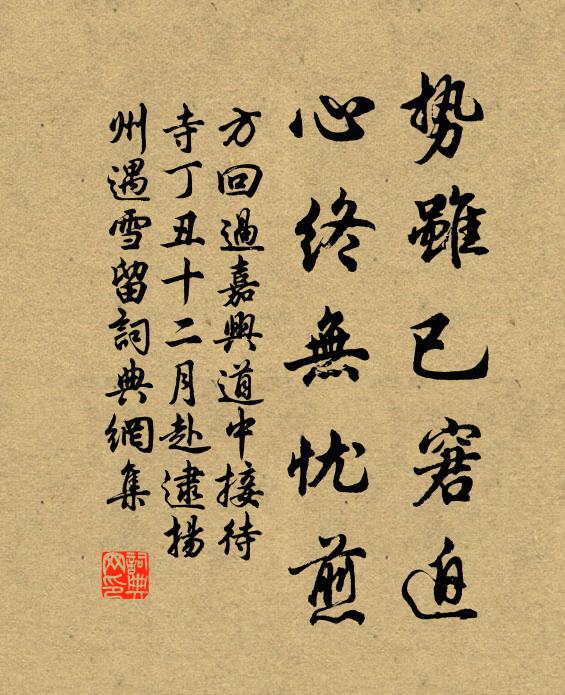 势雖已窘迫
心终無忧煎
方回過嘉興道中接待
寺丁丑十二月赴逮揚
州遇雪留詞典網集
詞典
网印